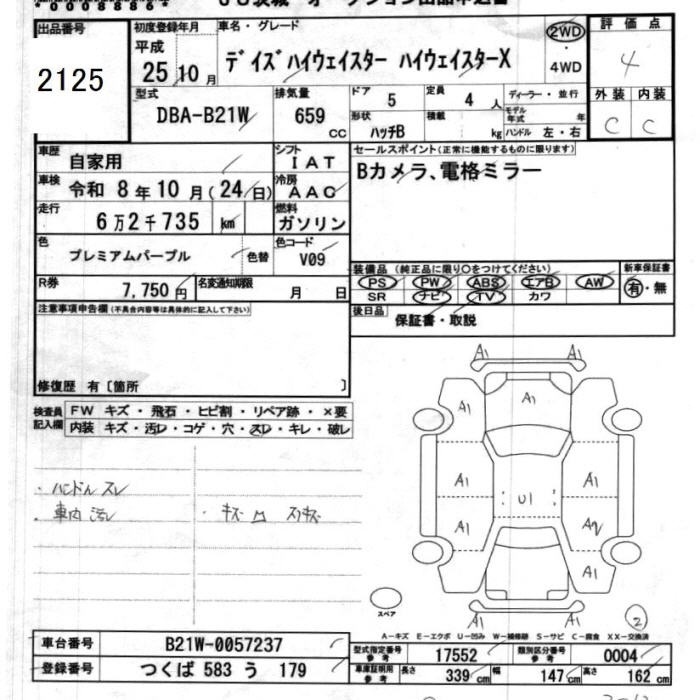 0008880
JU茨城 オークション出品申込書
出品番号 初度登録年月 車名・グレード 評価点
2125 平成 25 10月 デイズハイウェイスター ハイウェイスターX 2WD ・ 4WD 4
型式 排気量 ドア 5 定員 4 人 ディーラー・並行 外装 内装
DBA-B21W 659 CC 形状 ハッチB 積載 kg モデル年式 年 ハンドル 左・右 C C
車歴 自家用 シフト IAT セールスポイント(正常に機能するものに限ります)
車検 令和 8年10月(24日) 冷房 AAC Bカメラ、電格ミラー
走行 6万2千735 km 燃料 ガソリン
色 プレミアムパープル 色替 色コード V09
装備品 (純正品に限り○をつけてください) 新車保証書
R券 7,750円 名変通知期限 月 日 PS PW ABS エアB AW 有・無
SR ナビ TV カワ
注意事項申告欄(不具合内容等は具体的に記入して下さい) 後日品 保証書・取説
修復歴 有〔箇所 〕
検査員記入欄 FW キズ・飛石・ヒビ割・リペア跡・×要
内装 キズ・汚レ・コゲ・穴・スレ・キレ・破レ
・ハンドル スレ
・車内 汚レ ・キズ 凹 スリキズ
A1 A1
A1 A1 A1
A1 U1 A1
A1 A2
A1
スペア
A1 2
A-キズ E-エクボ U-凹み W-補修跡 S-サビ C-腐食 XX-交換済
車台番号 B21W-0057237 型式指定番号 参考 17552 類別区分番号 参考 0004
登録番号 つくば 583 う 179 車庫証明用 参考 長さ 339 cm 幅 147 cm 高さ 162 cm